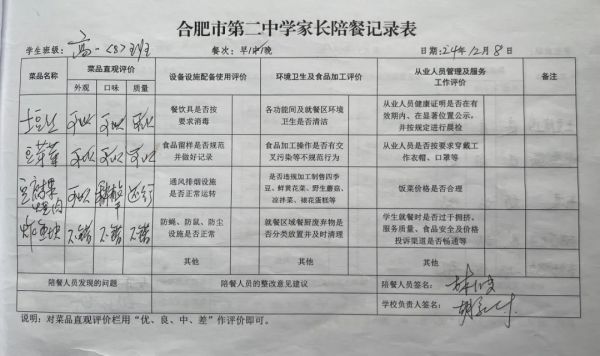 合肥市第二中学家长陪餐记录表
学生班级: 高一<8>班 餐次: 早/中/晚 日期: 24年12月8日
菜品名称 菜品直观评价 设备设施配备使用评价 环境卫生及食品加工评价 从业人员管理及服务工作评价 备注
外观 口味 质量
土豆丝 可以 可以 可以 餐饮具是否按要求消毒 各功能间及就餐区环境卫生是否清洁 从业人员健康证明是否在有效期内、在显著位置公示,并按规定进行晨检
豆芽菜 可以 可以 可以 食品留样是否规范并做好记录 食品加工操作是否有交叉污染等不规范行为 从业人员是否按要求穿戴工作衣帽、口罩等
豆腐果烧肉 可以 还行 通风排烟设施是否正常运转 是否违规加工制售四季豆、鲜黄花菜、野生蘑菇、凉拌菜、裱花蛋糕等 饭菜价格是否合理
炸鱼块 不错 不错 不错 防蝇、防鼠、防尘设施是否正常 就餐区域餐厨废弃物是否分类放置并及时清理 学生就餐时是否过于拥挤、服务质量、食品安全及价格投诉渠道是否畅通等
其他 其他 其他
陪餐人员发现的问题 陪餐人员的整改意见建议 陪餐人员签名:
学校负责人签名:
说明: 对菜品直观评价栏用“优、良、中、差”作评价即可。